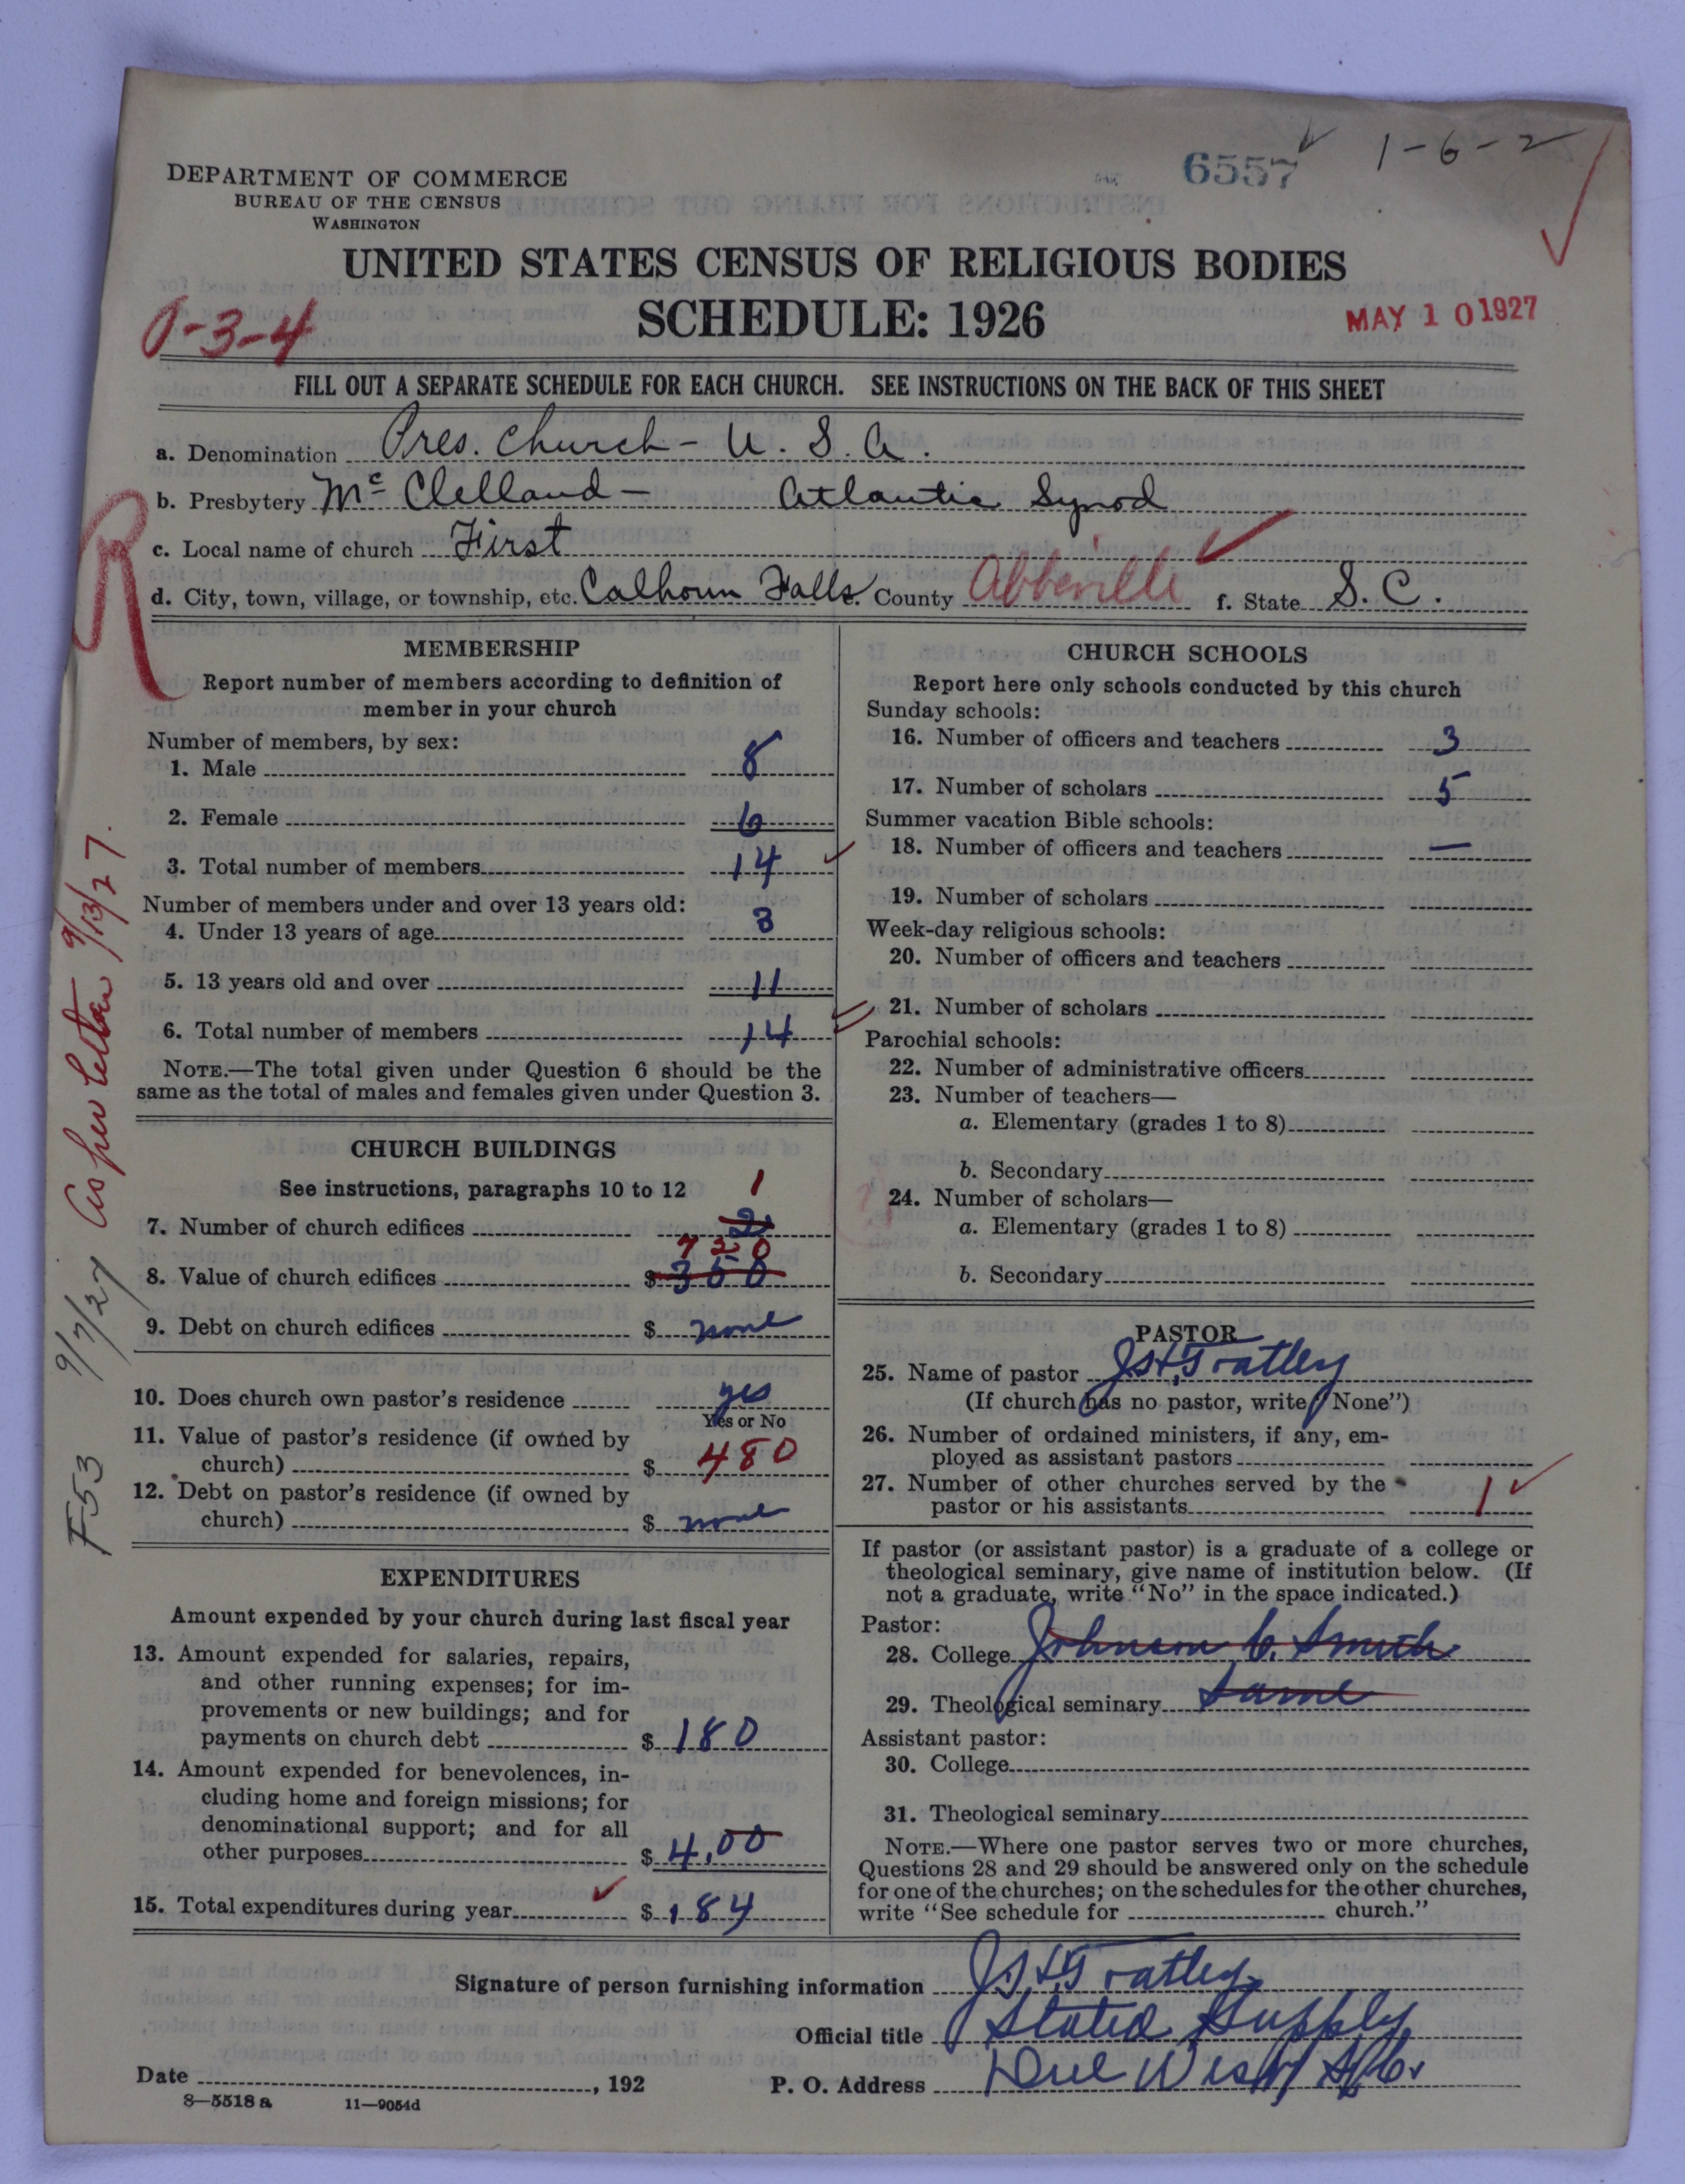 6557 1-6-2
DEPARTMENT OF COMMERCE
BUREAU OF THE CENSUS
WASHINGTON
UNITED STATES CENSUS OF RELIGIOUS BODIES
SCHEDULE: 1926
MAY 10 1927
0-3-4
FILL OUT A SEPARATE SCHEDULE FOR EACH CHURCH. SEE INSTRUCTIONS ON THE BACK OF THIS SHEET
a. Denomination Pres. Church - U. S. A.
b. Presbytery McClelland - Atlantic Synod
c. Local name of church First
d. City, town, village, or township, etc. Calhoun Falls County Abbeville f. State S. C.
R
9/7/27 As per letter 9/13/27.
F53
MEMBERSHIP
Report number of members according to definition of
member in your church
Number of members, by sex:
1. Male 8
2. Female 6
3. Total number of members 14
Number of members under and over 13 years old:
4. Under 13 years of age 3
5. 13 years old and over 11
6. Total number of members 14
NOTE.—The total given under Question 6 should be the
same as the total of males and females given under Question 3.
CHURCH BUILDINGS
See instructions, paragraphs 10 to 12
1
7. Number of church edifices 2
720
8. Value of church edifices $ 360
9. Debt on church edifices $ none
10. Does church own pastor's residence yes
Yes or No
11. Value of pastor's residence (if owned by
church) $ 480
12. Debt on pastor's residence (if owned by
church) $ none
EXPENDITURES
Amount expended by your church during last fiscal year
13. Amount expended for salaries, repairs,
and other running expenses; for im-
provements or new buildings; and for
payments on church debt $ 180
14. Amount expended for benevolences, in-
cluding home and foreign missions; for
denominational support; and for all
other purposes $ 4.00
15. Total expenditures during year $ 184
CHURCH SCHOOLS
Report here only schools conducted by this church
Sunday schools:
16. Number of officers and teachers 3
17. Number of scholars 5
Summer vacation Bible schools:
18. Number of officers and teachers —
19. Number of scholars
Week-day religious schools:
20. Number of officers and teachers
21. Number of scholars
Parochial schools:
22. Number of administrative officers
23. Number of teachers—
a. Elementary (grades 1 to 8)
b. Secondary
24. Number of scholars—
a. Elementary (grades 1 to 8)
b. Secondary
PASTOR
25. Name of pastor
(If church has no pastor, write "None")
26. Number of ordained ministers, if any, em-
ployed as assistant pastors
27. Number of other churches served by the
pastor or his assistants 1
If pastor (or assistant pastor) is a graduate of a college or
theological seminary, give name of institution below. (If
not a graduate, write "No" in the space indicated.)
Pastor:
28. College Johnson C. Smith
29. Theological seminary Same
Assistant pastor:
30. College
31. Theological seminary
NOTE.—Where one pastor serves two or more churches,
Questions 28 and 29 should be answered only on the schedule
for one of the churches; on the schedules for the other churches,
write "See schedule for church."
Signature of person furnishing information
Official title Stated Supply
Date , 192 P. O. Address Due West S.C.
8—5518 a 11—9054d